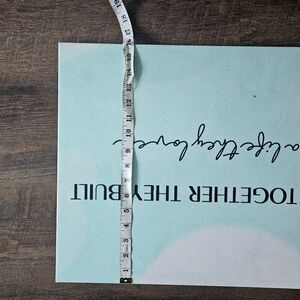 TOGETHER THEY BUILT
a life they love
1
2
3
4
5
6
7
8
9
10
11
12
13
14
15
16
17
18
19